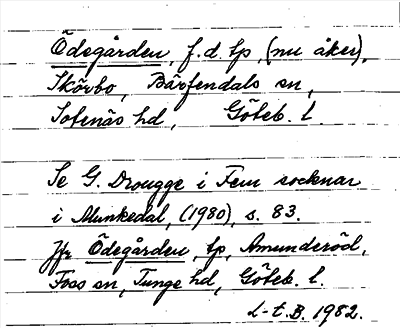 Ödegården, f.d. tp, (nu åker),
Skörbo, Bärfendals sn,
Sotenäs hd, Göteb. l
Se G. Drougge i Fem socknar
i Munkedal, (1980), s. 83.
Jfr Ödegården, tp, Amunderöd,
Foss sn, Tunge hd, Göteb. l.
L-t. B. 1982.